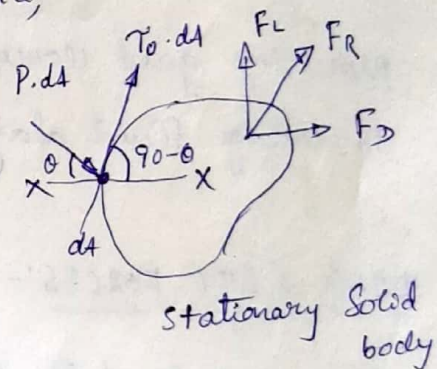 τ₀·dA
F_L
F_R
P.dA
F_D
θ
90-θ
X
X
dA
Stationary Solid
body